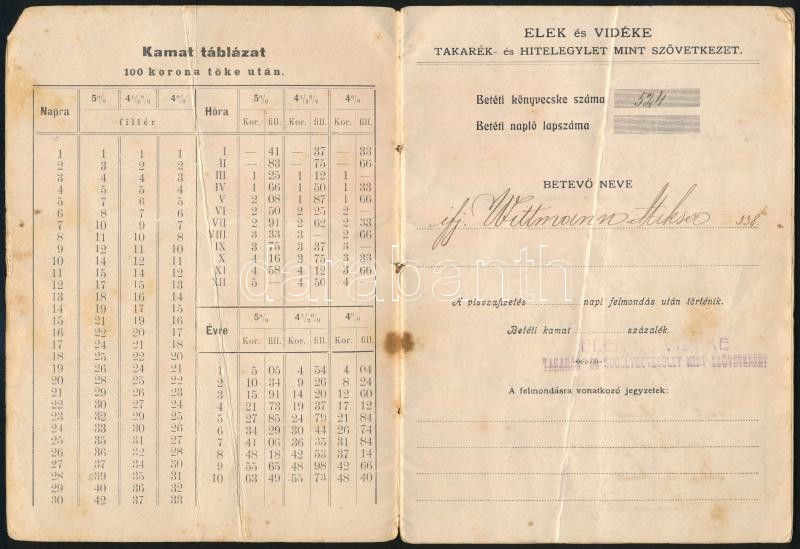 Kamat táblázat
100 korona tőke után.
Napra 5% 4½% 4% Hóra 5% 4½% 4%
fillér Kor. fill. Kor. fill. Kor. fill.
1 1 1 1 I — 41 — 37 — 33
2 3 2 2 II — 83 — 75 — 66
3 4 4 3 III 1 25 1 12 1 —
4 5 5 4 IV 1 66 1 50 1 33
5 7 6 5 V 2 08 1 87 1 66
6 8 7 6 VI 2 50 2 25 2 —
7 10 9 7 VII 2 91 2 62 2 33
8 11 10 8 VIII 3 33 3 — 2 66
9 12 11 10 IX 3 75 3 37 3 —
10 14 12 11 X 4 16 3 75 3 33
11 15 14 12 XI 4 58 4 12 3 66
12 17 15 13 XII 5 — 4 50 4 —
13 18 16 14
14 19 17 15
15 21 19 16 Évre 5% 4½% 4%
16 22 20 17 Kor. fill. Kor. fill. Kor. fill.
17 24 21 18
18 25 22 20 1 5 05 4 54 4 04
19 26 24 21 2 10 34 9 26 8 24
20 28 25 22 3 15 91 14 20 12 60
21 29 26 23 4 21 73 19 37 17 12
22 30 27 24 5 27 85 24 79 21 84
23 32 29 25 6 34 29 30 44 26 74
24 33 30 26 7 41 06 36 35 31 84
25 35 31 27 8 48 18 42 53 37 14
26 36 32 28 9 55 65 48 98 42 66
27 37 34 30 10 63 49 55 73 48 40
28 39 35 31
29 40 36 32
30 42 37 33
ELEK és VIDÉKE
TAKARÉK- és HITELEGYLET MINT SZÖVETKEZET.
Betéti könyvecske száma 524
Betéti napló lapszáma
BETEVŐ NEVE
ifj. Wittmann Miksa 338
A visszafizetés napi felmondás után történik.
Betéti kamat százalék.
ELEK VIDÉKE
TAKARÉK- MINT SZÖVETKEZET
A felmondásra vonatkozó jegyzetek:
darabanth